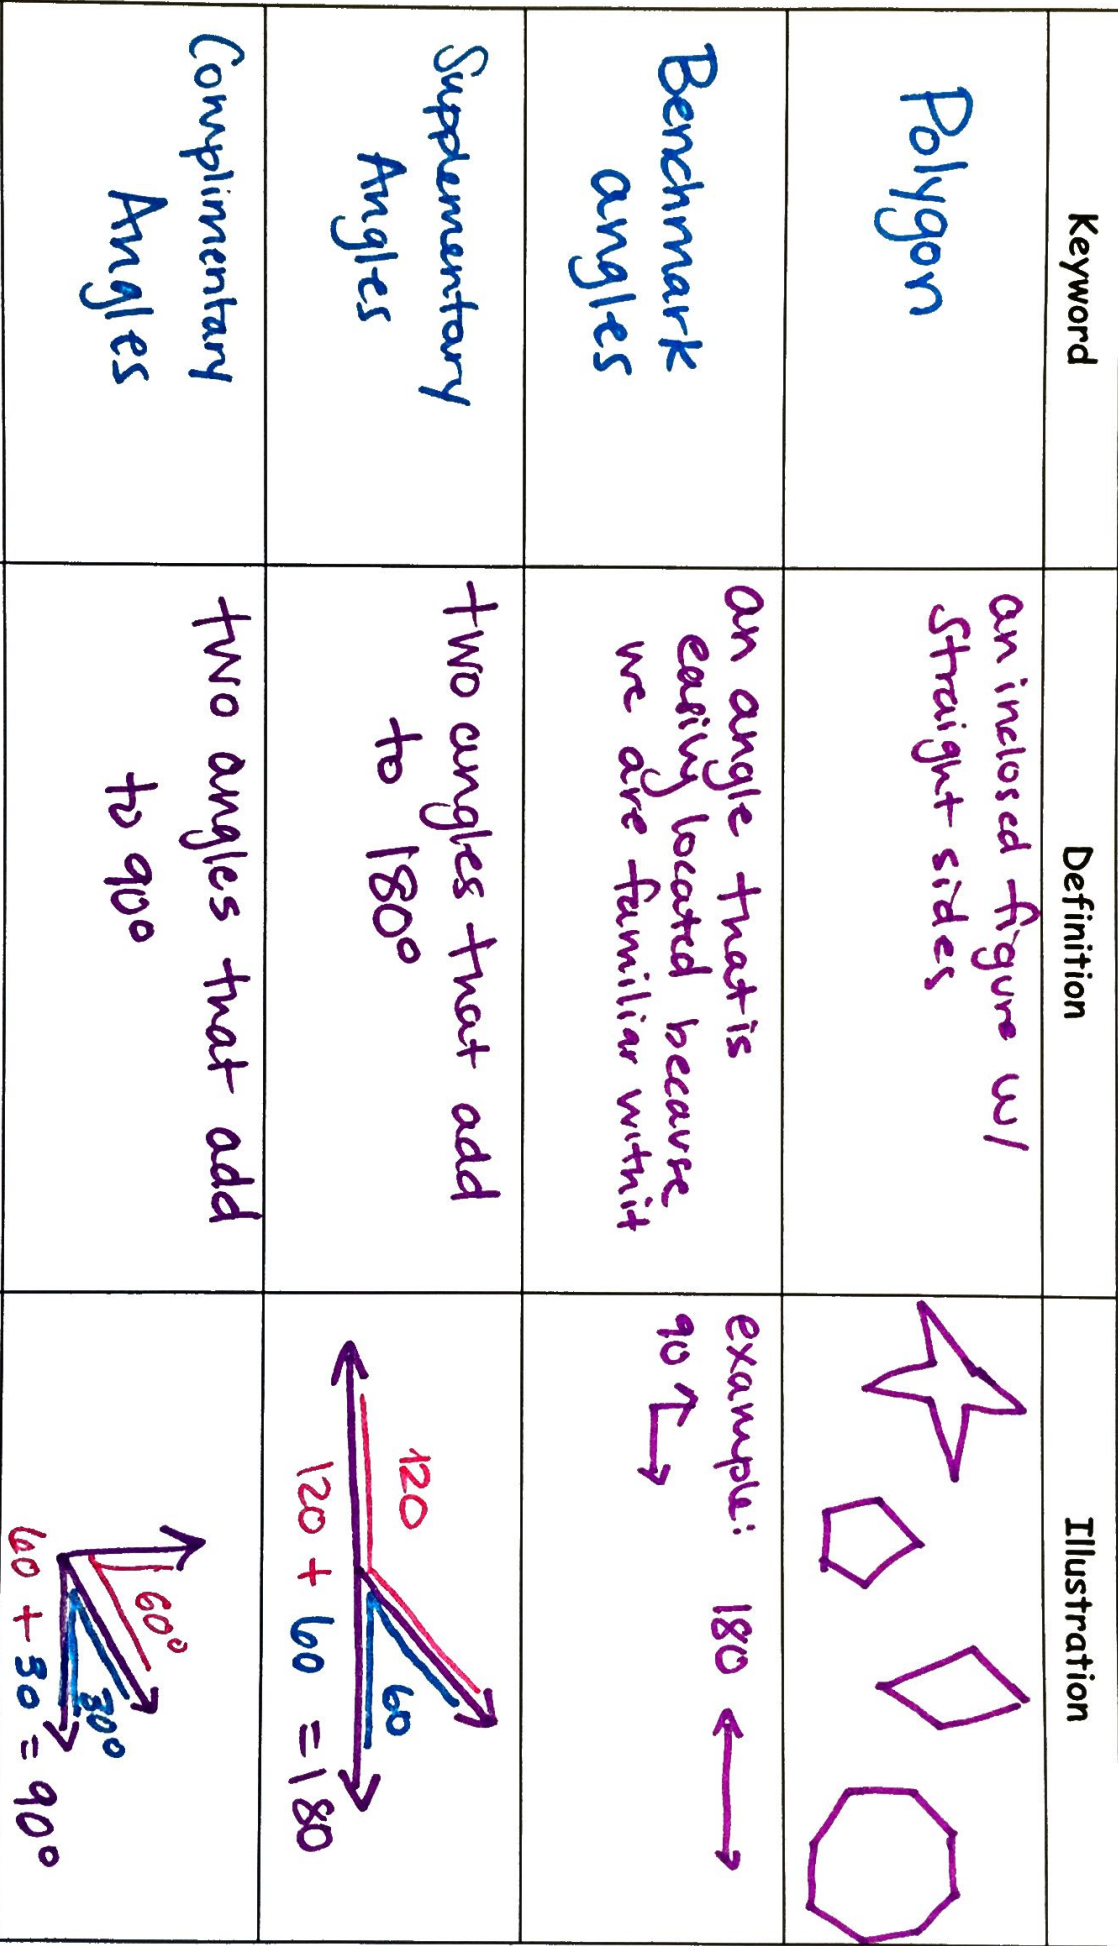 Keyword
Definition
Illustration
Polygon
an inclosed figure w/
straight sides
Benchmark
angles
an angle that is
easily located because
we are familiar with it
example: 180
90
Supplementary
Angles
two angles that add
to 180°
120
60
120 + 60 = 180
Complimentary
Angles
two angles that add
to 90°
60°
30°
60 + 30 = 90°